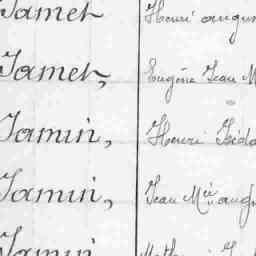 Jamet Henri
Jamet, Eugène Jean M
Jamin, Henri Isido
Jamin, Jean Mie aug
Jamin